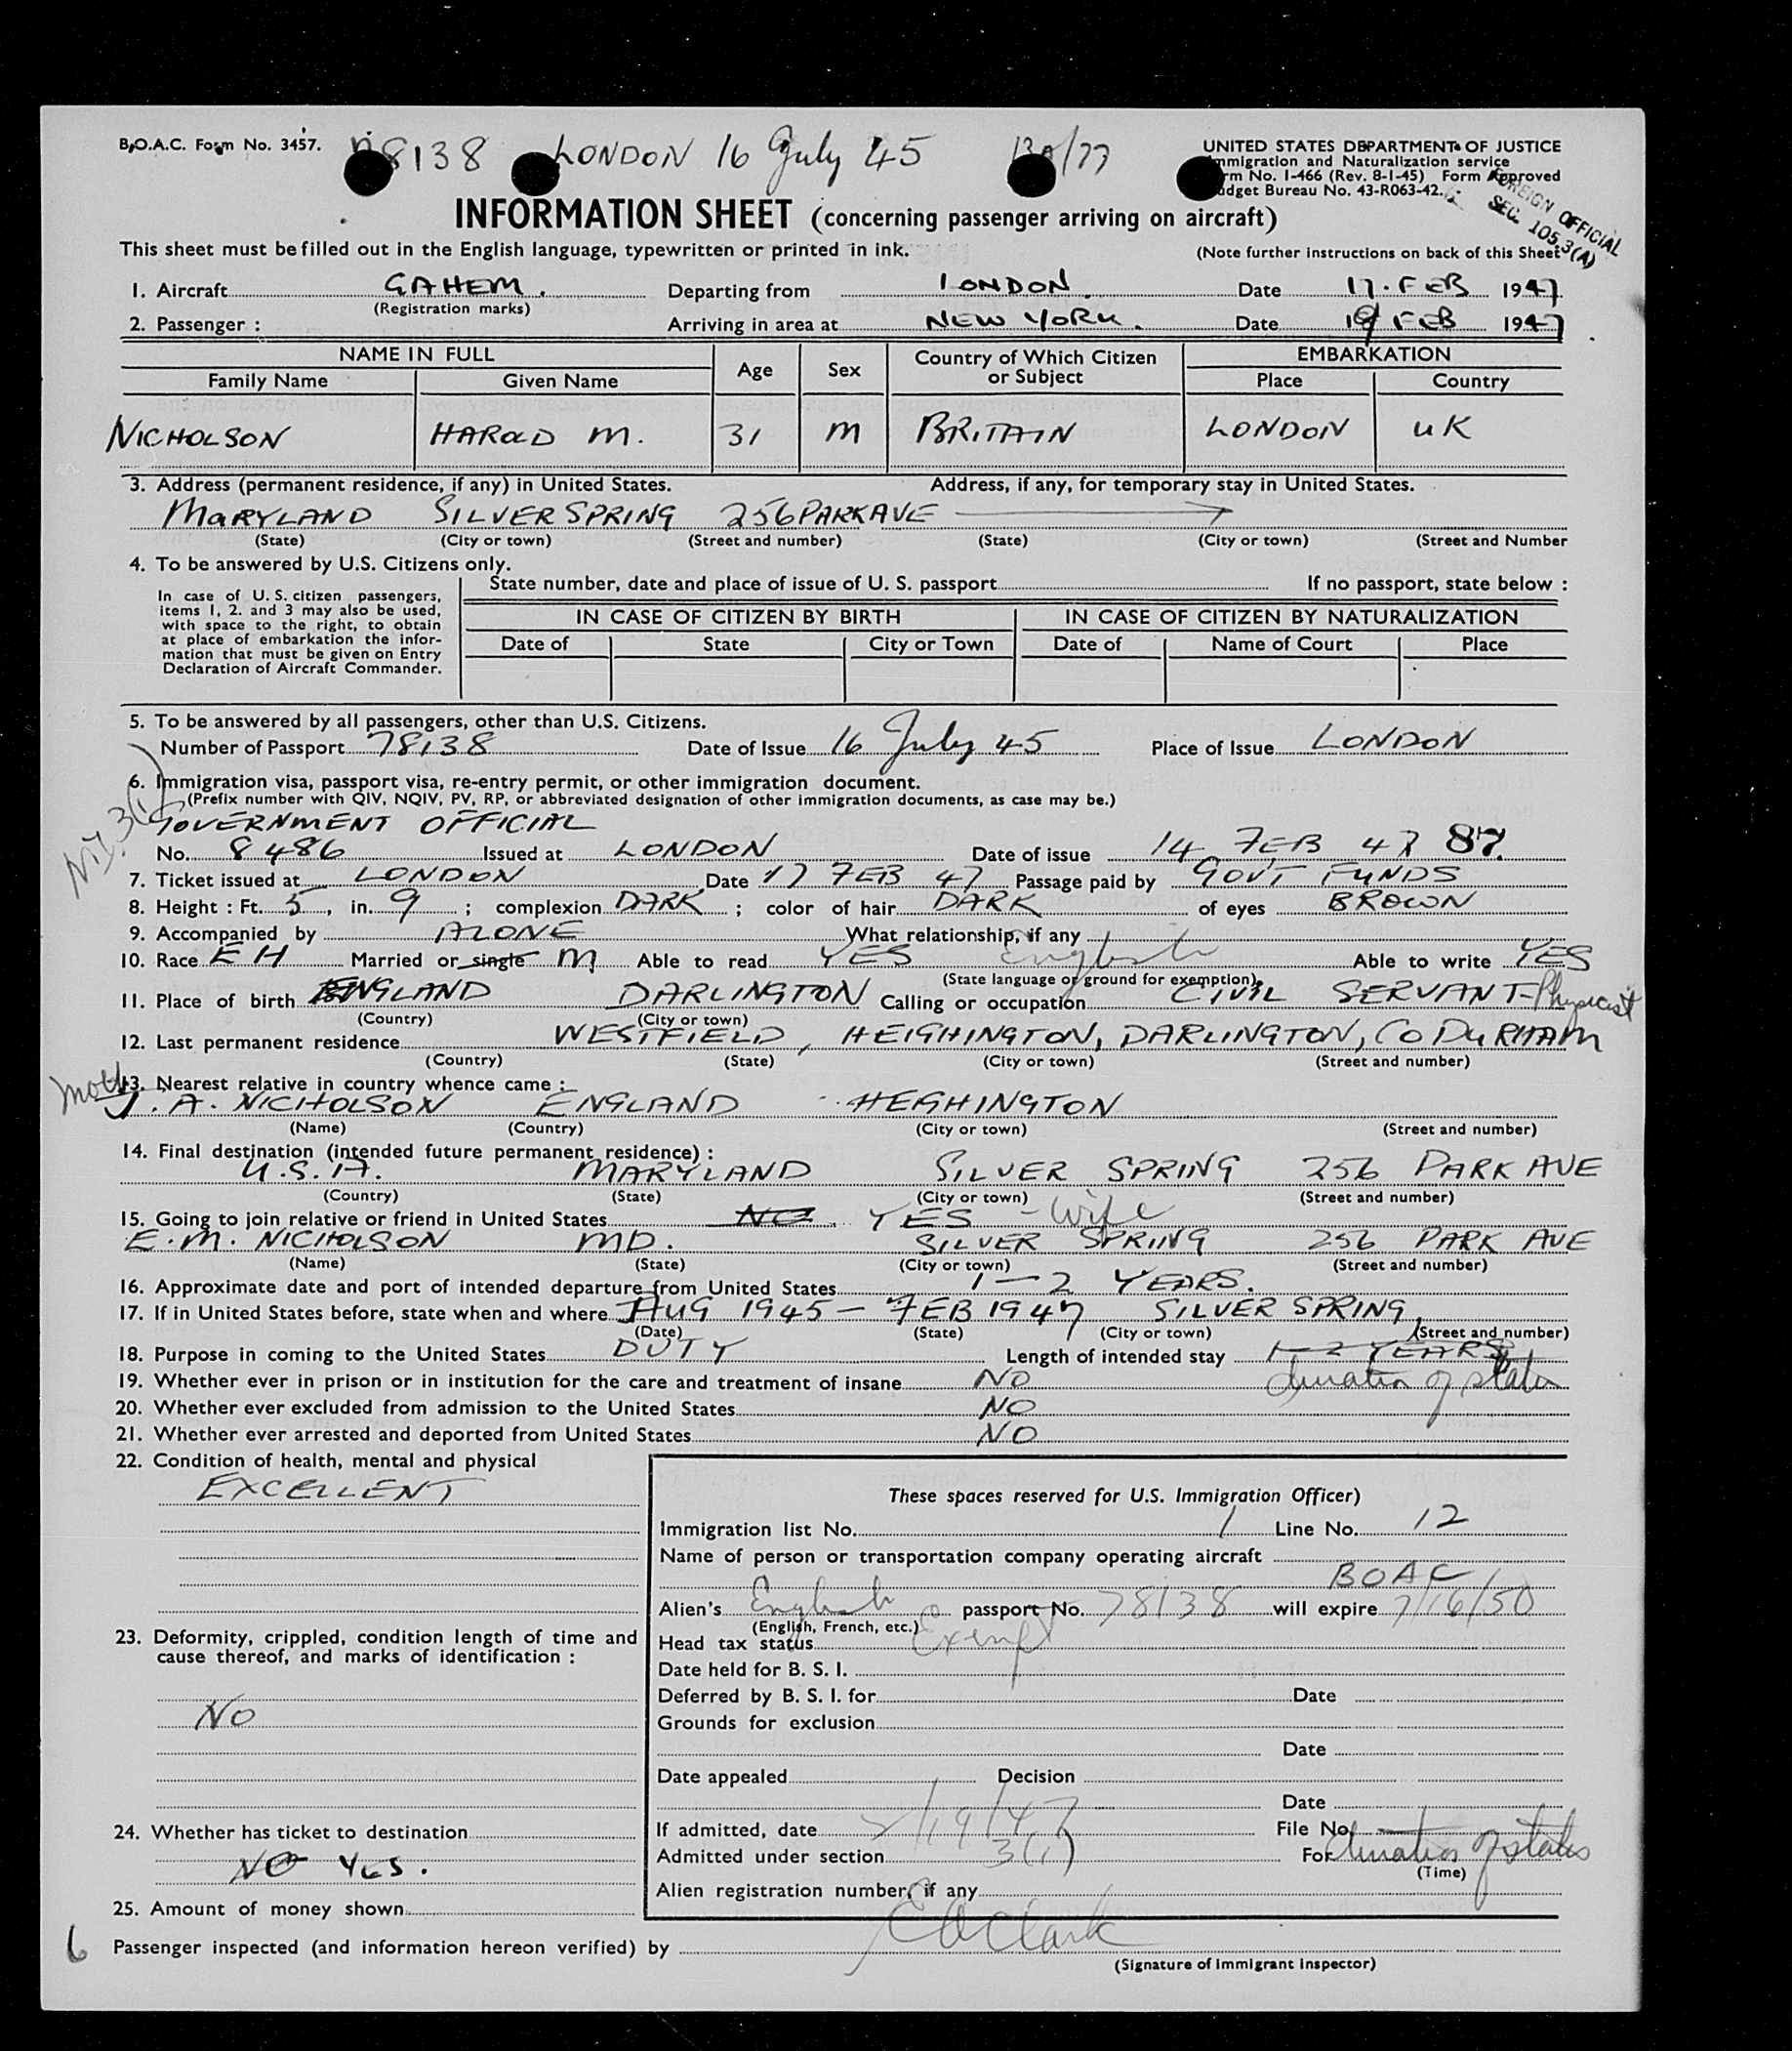 B.O.A.C. Form No. 3457. 78138 LONDON 16 July 45
UNITED STATES DEPARTMENT OF JUSTICE
Immigration and Naturalization service
Form No. I-466 (Rev. 8-1-45) Form Approved
Budget Bureau No. 43-R063-42.
FOREIGN OFFICIAL
SEC. 105.3(A)
INFORMATION SHEET (concerning passenger arriving on aircraft)
This sheet must be filled out in the English language, typewritten or printed in ink. (Note further instructions on back of this Sheet
1. Aircraft GAHEM. Departing from LONDON. Date 17. FEB 1947
(Registration marks)
2. Passenger : Arriving in area at NEW YORK. Date 19 FEB 1947
NAME IN FULL Age Sex Country of Which Citizen or Subject EMBARKATION
Family Name Given Name Place Country
NICHOLSON HAROLD M. 31 M BRITAIN LONDON UK
3. Address (permanent residence, if any) in United States. Address, if any, for temporary stay in United States.
MARYLAND SILVER SPRING 256 PARK AVE
(State) (City or town) (Street and number) (State) (City or town) (Street and Number
4. To be answered by U.S. Citizens only.
State number, date and place of issue of U. S. passport If no passport, state below :
In case of U. S. citizen passengers,
items 1, 2. and 3 may also be used,
with space to the right, to obtain
at place of embarkation the infor-
mation that must be given on Entry
Declaration of Aircraft Commander.
IN CASE OF CITIZEN BY BIRTH IN CASE OF CITIZEN BY NATURALIZATION
Date of State City or Town Date of Name of Court Place
5. To be answered by all passengers, other than U.S. Citizens.
Number of Passport 78138 Date of Issue 16 July 45 Place of Issue LONDON
6. Immigration visa, passport visa, re-entry permit, or other immigration document.
(Prefix number with QIV, NQIV, PV, RP, or abbreviated designation of other immigration documents, as case may be.)
GOVERNMENT OFFICIAL
No. 8486 Issued at LONDON Date of issue 14 FEB 47 87.
7. Ticket issued at LONDON Date 17 FEB 47 Passage paid by GOVT FUNDS
8. Height : Ft. 5, in. 9 ; complexion DARK ; color of hair DARK of eyes BROWN
9. Accompanied by ALONE What relationship, if any
10. Race EH Married or single M Able to read YES English Able to write YES
(State language or ground for exemption)
11. Place of birth ENGLAND DARLINGTON Calling or occupation CIVIL SERVANT - Physicist
(Country) (City or town)
12. Last permanent residence WESTFIELD, HEIGHINGTON, DARLINGTON, CO DURHAM
(Country) (State) (City or town) (Street and number)
13. Nearest relative in country whence came :
J. A. NICHOLSON ENGLAND HEIGHINGTON
(Name) (Country) (City or town) (Street and number)
14. Final destination (intended future permanent residence) :
U.S.A. MARYLAND SILVER SPRING 256 PARK AVE
(Country) (State) (City or town) (Street and number)
15. Going to join relative or friend in United States NO. YES - Wife
E. M. NICHOLSON MD. SILVER SPRING 256 PARK AVE
(Name) (State) (City or town) (Street and number)
16. Approximate date and port of intended departure from United States 1 — 2 YEARS.
17. If in United States before, state when and where AUG 1945 - FEB 1947 SILVER SPRING
(Date) (State) (City or town) (Street and number)
18. Purpose in coming to the United States DUTY Length of intended stay 1-2 YEARS
duration of status
19. Whether ever in prison or in institution for the care and treatment of insane NO
20. Whether ever excluded from admission to the United States NO
21. Whether ever arrested and deported from United States NO
22. Condition of health, mental and physical
EXCELLENT
23. Deformity, crippled, condition length of time and
cause thereof, and marks of identification :
NO
24. Whether has ticket to destination
NO YES.
25. Amount of money shown
These spaces reserved for U.S. Immigration Officer)
Immigration list No. 1 Line No. 12
Name of person or transportation company operating aircraft
BOAC
Alien's English passport No. 78138 will expire 7/16/50
(English, French, etc.)
Head tax status Exempt
Date held for B. S. I.
Deferred by B. S. I. for Date
Grounds for exclusion
Date
Date appealed Decision
Date
If admitted, date 2/19/47 File No.
Admitted under section 3(1) For duration of status
(Time)
Alien registration number, if any
6 Passenger inspected (and information hereon verified) by E A Clark
(Signature of Immigrant Inspector)